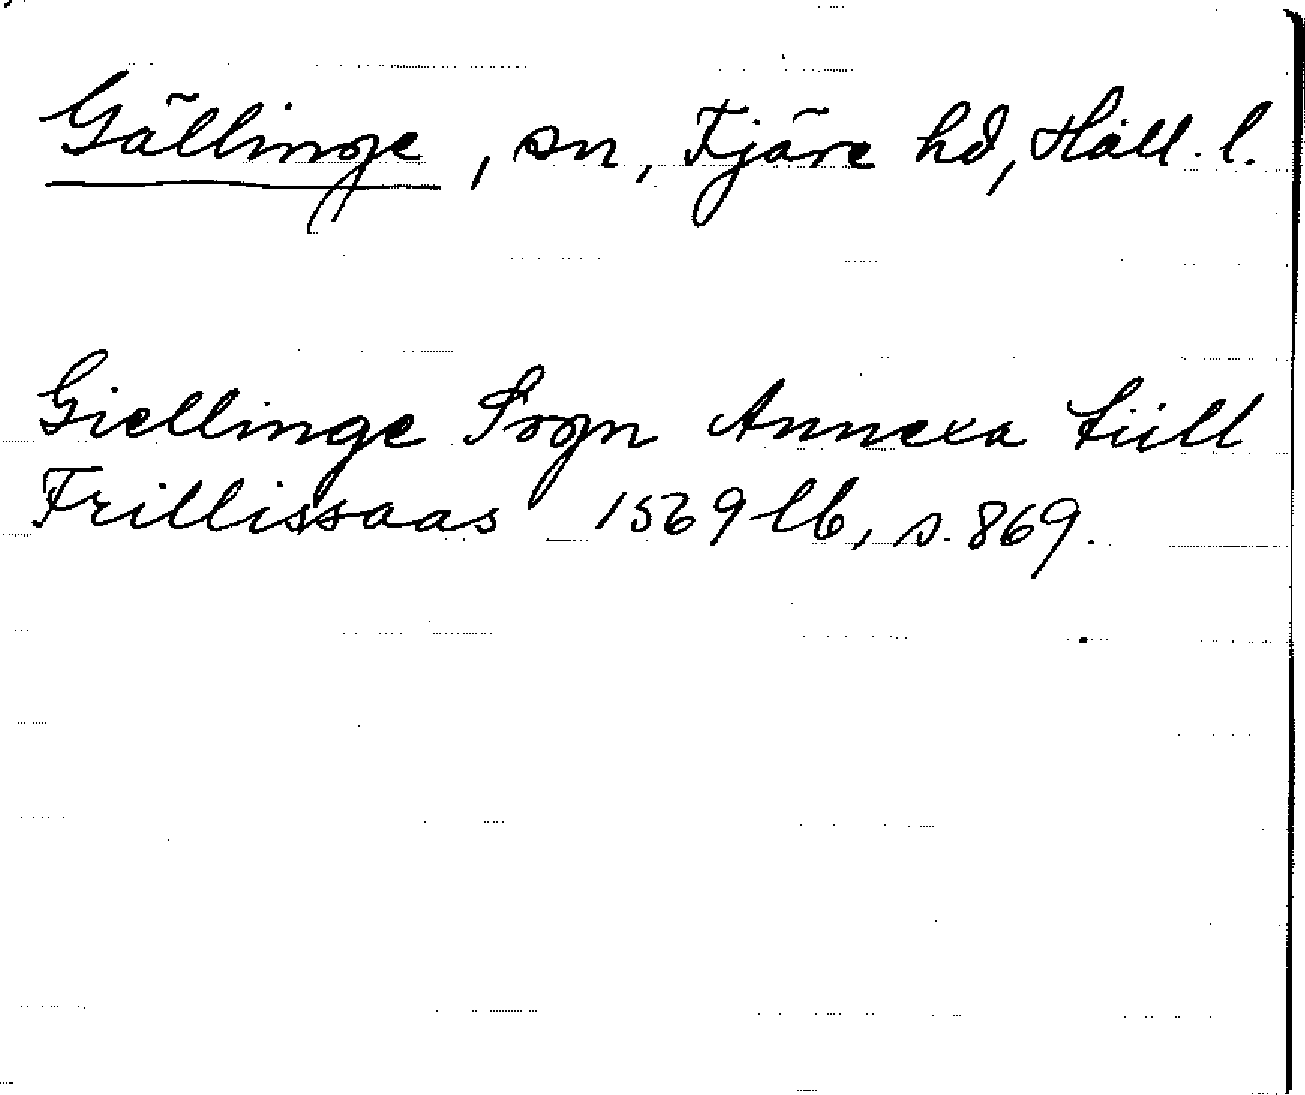 Gällinge, sn, Fjäre hd, Hall. l.
Giellinge Sogn Annexa tiill
Frillissaas 1569 lb, s. 869.